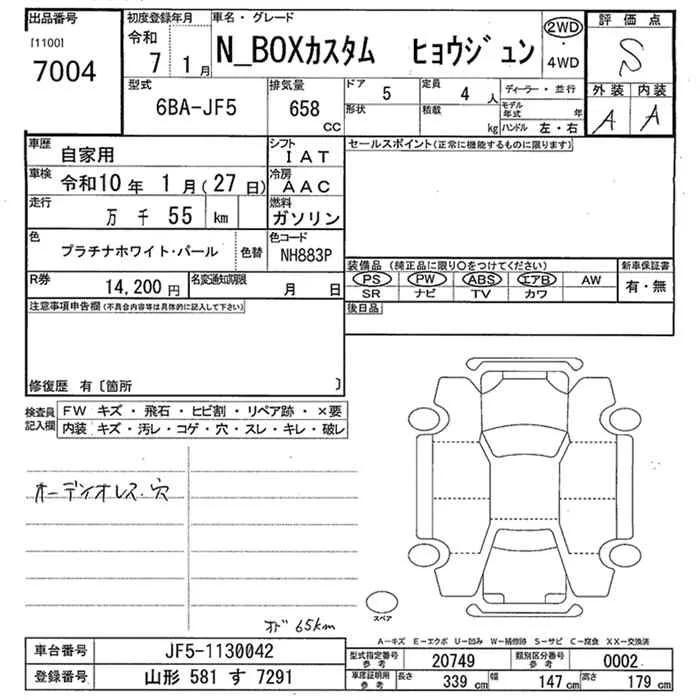 出品番号
[1100]
7004
初度登録年月
令和
7 1月
車名・グレード
N_BOXカスタム ヒョウジュン
2WD
・
4WD
評価点
S
外装 内装
A A
型式
6BA-JF5
排気量
658
CC
ドア
5
定員
4 人
形状
積載
kg
ディーラー・並行
モデル年式 年
ハンドル 左・右
車歴
自家用
シフト
IAT
車検
令和10年 1月(27日)
冷房
AAC
走行
万 千 55 km
燃料
ガソリン
色
プラチナホワイト・パール
色替
色コード
NH883P
R券
14,200円
名変通知期限
月 日
セールスポイント(正常に機能するものに限ります)
装備品 (純正品に限り○をつけてください)
新車保証書
PS PW ABS エアB AW
SR ナビ TV カワ
有・無
後日品
注意事項申告欄(不具合内容等は具体的に記入して下さい)
修復歴 有〔箇所 〕
検査員記入欄
FW キズ・飛石・ヒビ割・リペア跡・×要
内装 キズ・汚レ・コゲ・穴・スレ・キレ・破レ
オーディオレス.穴
スペア
オド 65km
A-キズ E-エクボ U-凹み W-補修跡 S-サビ C-腐食 XX-交換済
車台番号
JF5-1130042
登録番号
山形 581 す 7291
型式指定番号
参考
20749
類別区分番号
参考
0002
車庫証明用
参考
長さ
339 cm
幅
147 cm
高さ
179 cm